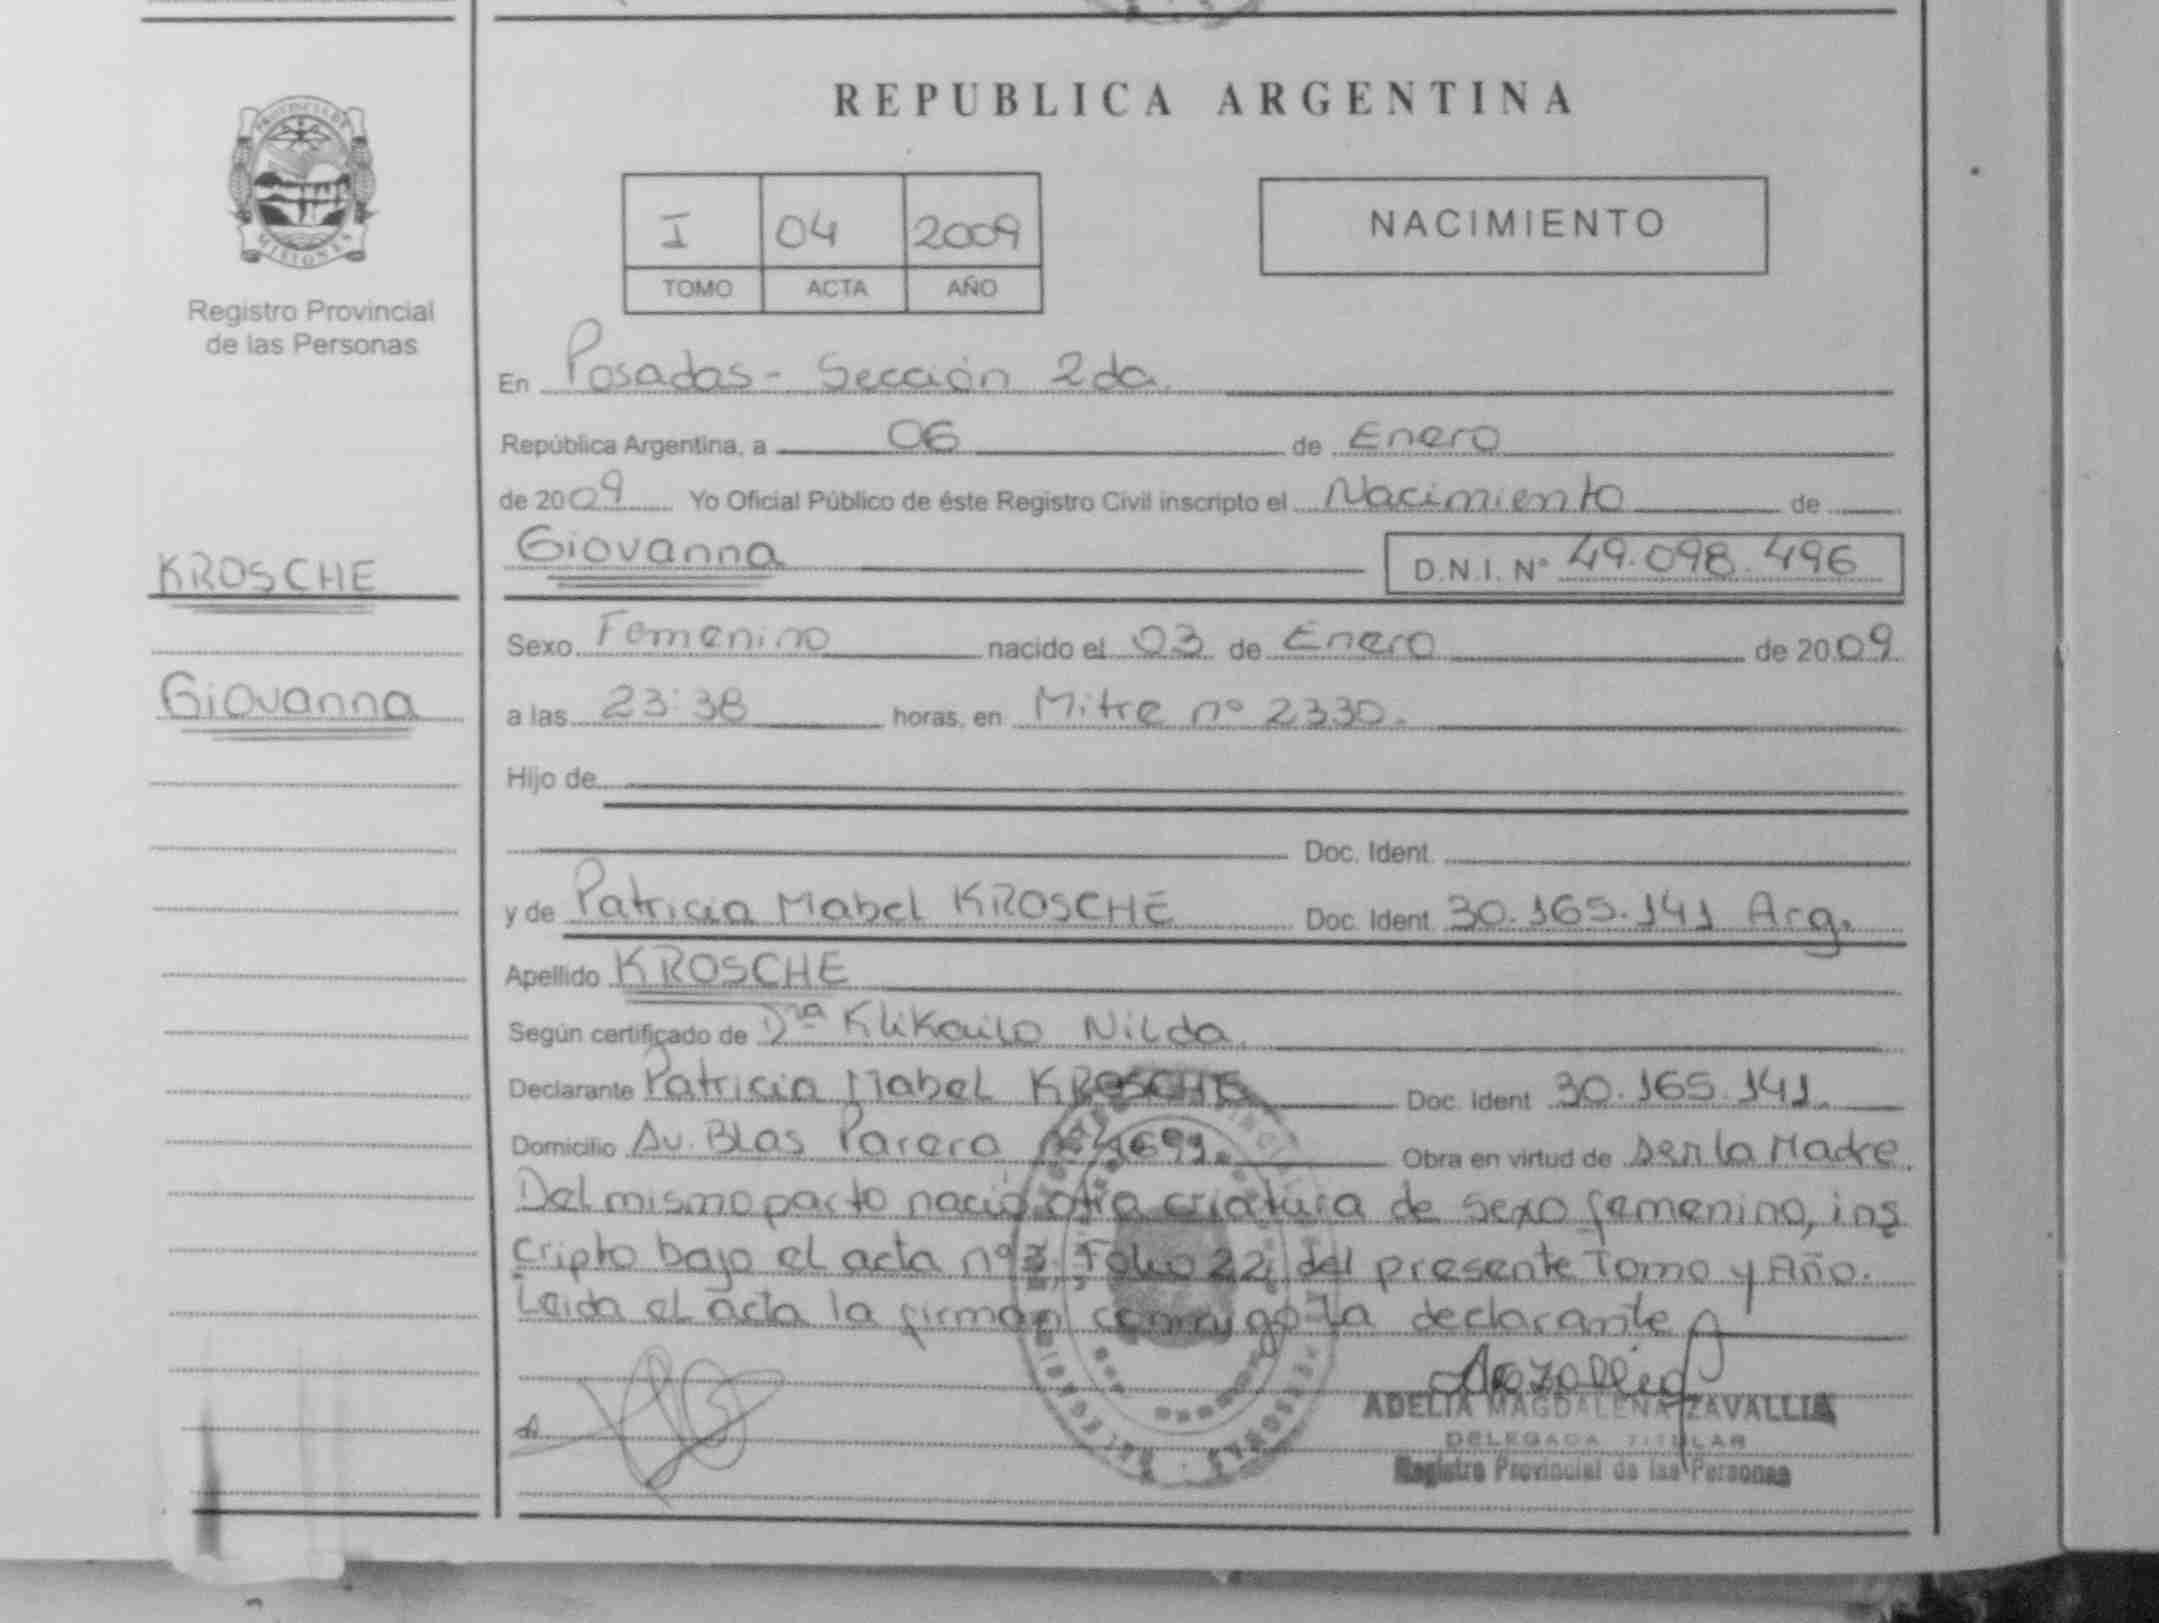 REPUBLICA ARGENTINA
PROVINCIA DE
MISIONES
Registro Provincial
de las Personas
I 04 2009
TOMO ACTA AÑO
NACIMIENTO
En Posadas - Sección 2da.
República Argentina, a 06 de Enero
de 2009 Yo Oficial Público de éste Registro Civil inscripto el Nacimiento de
KROSCHE
Giovanna
Giovanna D.N.I. Nº 49.098.496
Sexo Femenino nacido el 03 de Enero de 2009
a las 23:38 horas, en Mitre nº 2330.
Hijo de
Doc. Ident.
y de Patricia Mabel KROSCHE Doc. Ident. 30.165.141 Arg.
Apellido KROSCHE
Según certificado de Dra Klikailo Nilda.
Declarante Patricia Mabel KROSCHE Doc. Ident 30.165.141.
Domicilio Av. Blas Parera nº 4699. Obra en virtud de ser la Madre.
Del mismo parto nació otra criatura de sexo femenino, ins
cripto bajo el acta nº 3, Folio 22, del presente Tomo y Año.
Leida el acta la firman conmigo la declarante
ADELIA MAGDALENA ZAVALLIA
DELEGADA TITULAR
Registro Provincial de las Personas